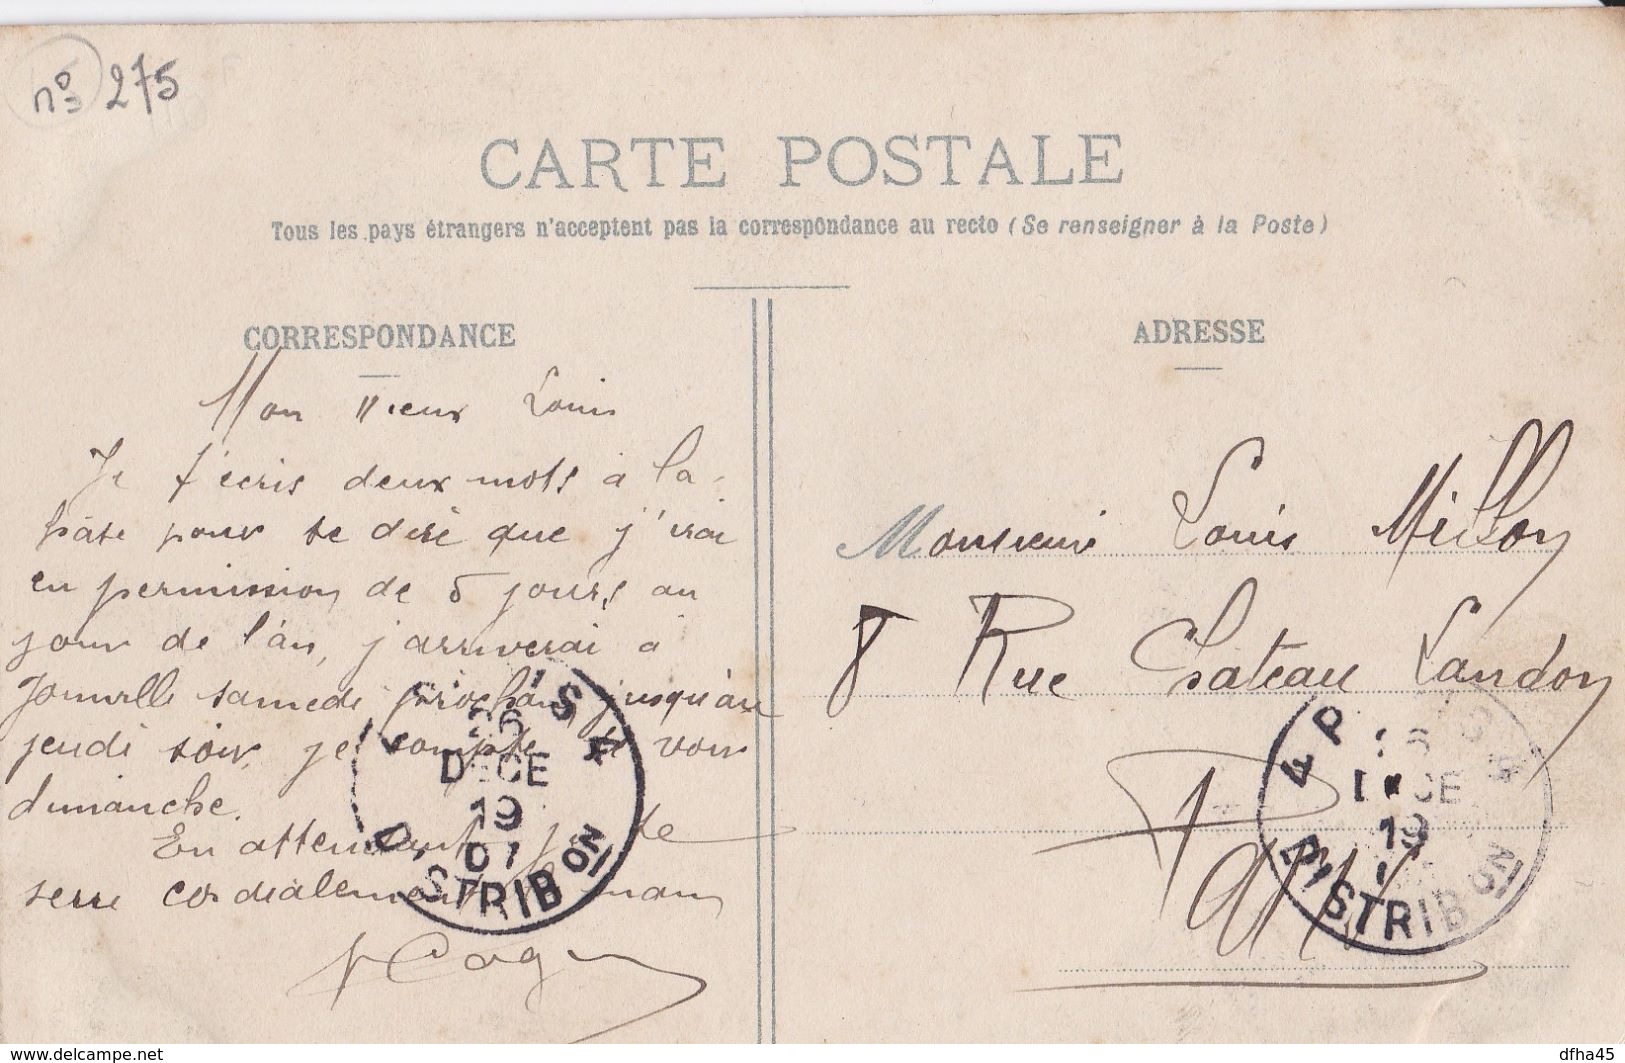 nº 275
CARTE POSTALE
Tous les pays étrangers n'acceptent pas la correspondance au recto (Se renseigner à la Poste)
CORRESPONDANCE
Mon vieux Louis
Je t'écris deux mots à la
hâte pour te dire que j'irai
en permission de 5 jours, au
jour de l'an, j'arriverai à
Joinville samedi prochain, jusqu'au
jeudi soir, je compte te voir
dimanche.
En attendant je te
serre cordialement la main
26
DECE
19
07
DISTRIBON
ADRESSE
Monsieur Louis Millon
8 Rue Chateau Landon
Paris
PARIS
DECE
19
DISTRIBON
delcampe.net
dfha45